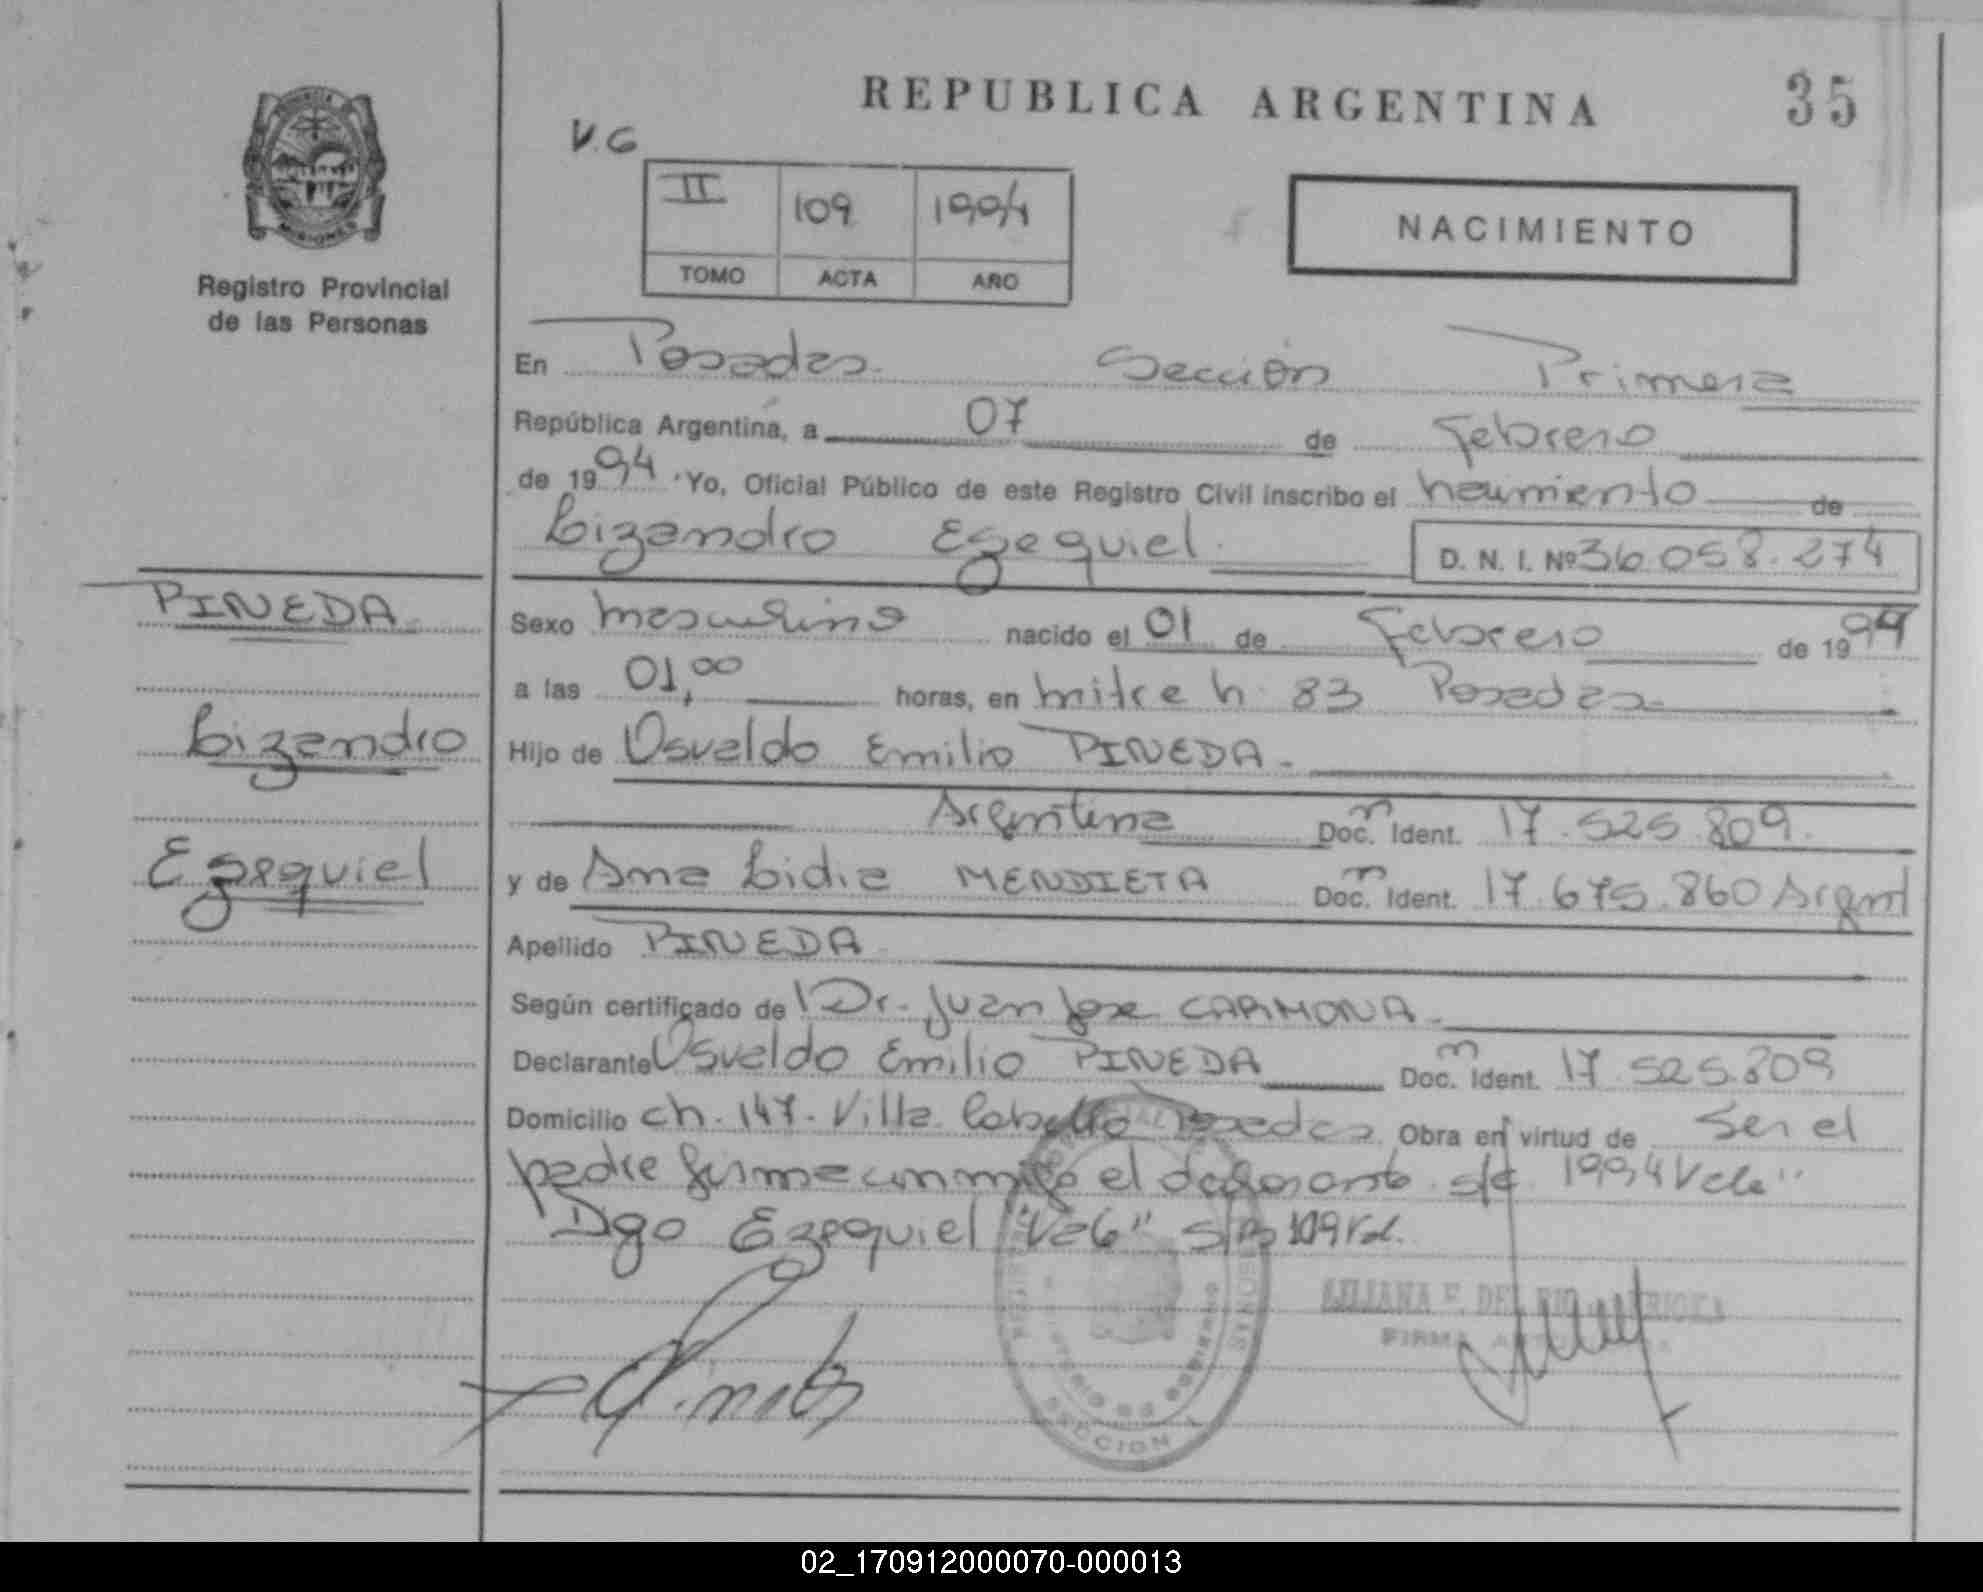 REPUBLICA ARGENTINA
35
V.6
II 109 1994
TOMO ACTA AÑO
NACIMIENTO
MISIONES
Registro Provincial
de las Personas
En Posadas Sección Primera
República Argentina, a 07 de Febrero
de 1994 Yo, Oficial Público de este Registro Civil inscribo el nacimiento de
Lizandro Ezequiel D. N. I. Nº 36.058.274
PINEDA
Lizandro
Ezequiel
Sexo masculino nacido el 01 de Febrero de 1994
a las 01,00 horas, en mitre n. 83 Posadas
Hijo de Osvaldo Emilio PINEDA
Argentina Doc. Ident. 17.525.809
y de Ana Lidia MENDIETA Doc. Ident. 17.675.860 Argent
Apellido PINEDA
Según certificado de Dr. Juan Jose CARMONA
Declarante Osvaldo Emilio PINEDA Doc. Ident. 17.525.809
Domicilio ch. 147. Villa Posadas Obra en virtud de Ser el
padre firma el 1994 Vale"
Dgo Ezequiel "Vale" s/b 109 Val.
SECCION
FIRMA
02_170912000070-000013